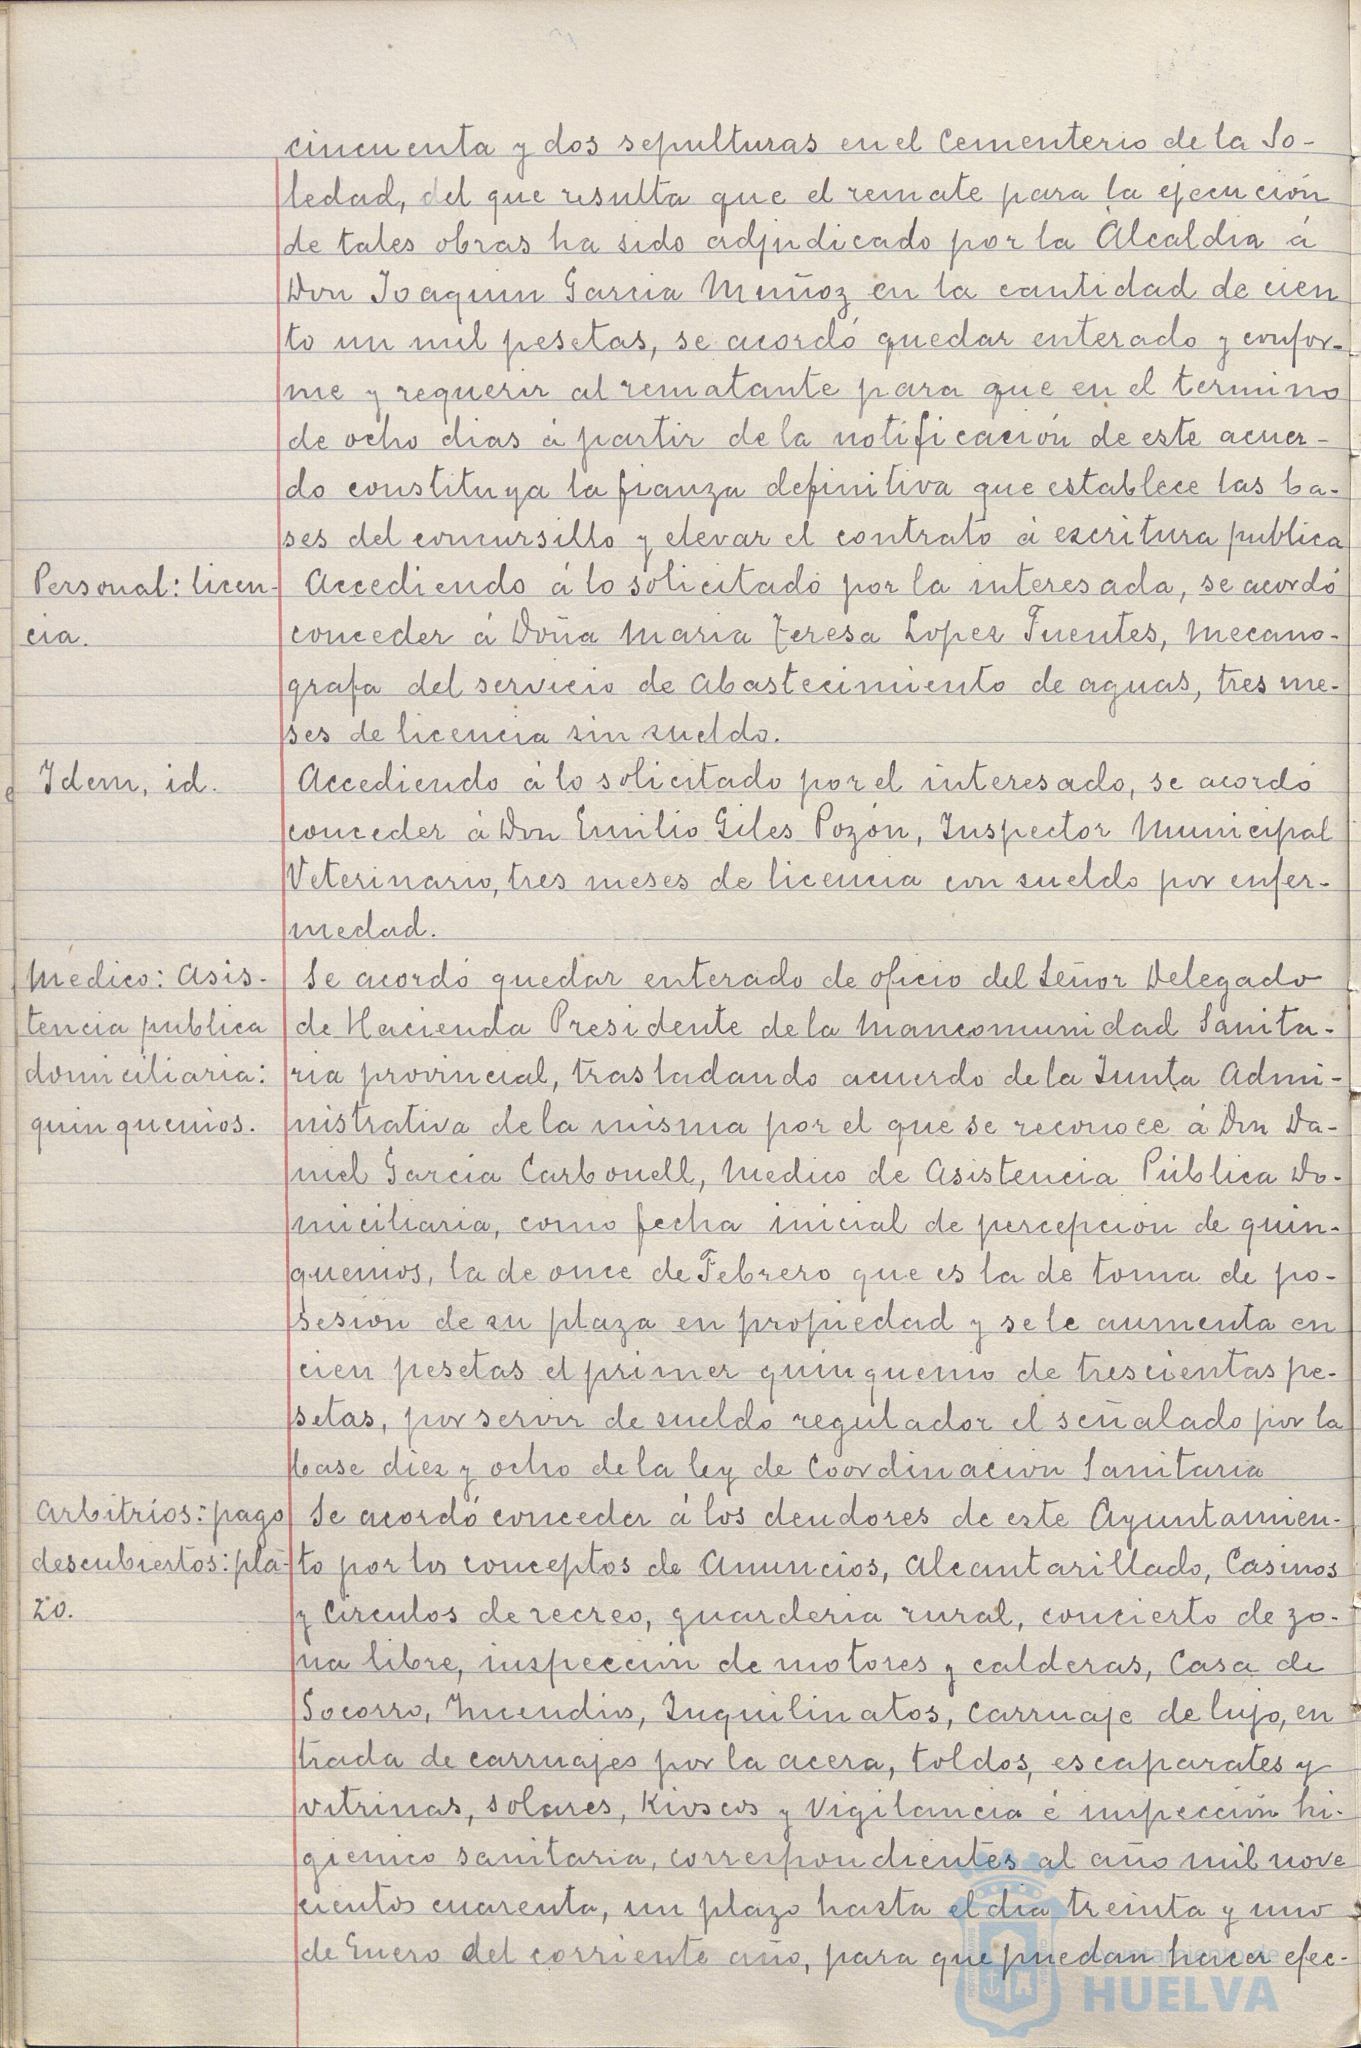 cincuenta y dos sepulturas en el Cementerio de la So-
ledad, del que resulta que el remate para la ejecución
de tales obras ha sido adjudicado por la Alcaldia á
Don Joaquin Garcia Muñoz en la cantidad de cien
to un mil pesetas, se acordó quedar enterado y confor-
me y requerir al rematante para que en el termino
de ocho dias á partir de la notificación de este acuer-
do constituya la fianza definitiva que establece las ba-
ses del concursillo y elevar el contrato á escritura publica
Personal: licen-
cia.
Accediendo á lo solicitado por la interesada, se acordó
conceder á Doña Maria Teresa Lopez Fuentes, mecano-
grafa del servicio de abastecimiento de aguas, tres me-
ses de licencia sin sueldo.
Idem, id.
Accediendo á lo solicitado por el interesado, se acordó
conceder á Don Emilio Giles Pozón, Inspector Municipal
Veterinario, tres meses de licencia con sueldo por enfer-
medad.
Médico: Asis-
tencia publica
domiciliaria:
quinquenios.
Se acordó quedar enterado de oficio del Señor Delegado
de Hacienda Presidente de la Mancomunidad Sanita-
ria provincial, trasladando acuerdo de la Junta Admi-
nistrativa de la misma por el que se reconoce á Don Da-
niel García Carbonell, Medico de Asistencia Pública Do-
miciliaria, como fecha inicial de percepción de quin-
quenios, la de once de Febrero que es la de toma de po-
sesión de su plaza en propiedad y se le aumenta en
cien pesetas el primer quinquenio de trescientas pe-
setas, por servir de sueldo regulador el señalado por la
base diez y ocho de la ley de Coordinación Sanitaria
Arbitrios: pago
descubiertos: pla-
zo.
Se acordó conceder á los deudores de este Ayuntamien-
to por los conceptos de Anuncios, Alcantarillado, Casinos
y Circulos de recreo, guarderia rural, concierto de zo-
na libre, inspección de motores y calderas, Casa de
Socorro, Incendios, Inquilinatos, Carruaje de lujo, en
trada de carruajes por la acera, toldos, escaparates y
vitrinas, solares, Kioscos y Vigilancia é inspección hi-
gienico sanitaria, correspondientes al año mil nove
cientos cuarenta, un plazo hasta el dia treinta y uno
de Enero del corriente año, para que puedan hacer efec-
Ayuntamiento de
HUELVA